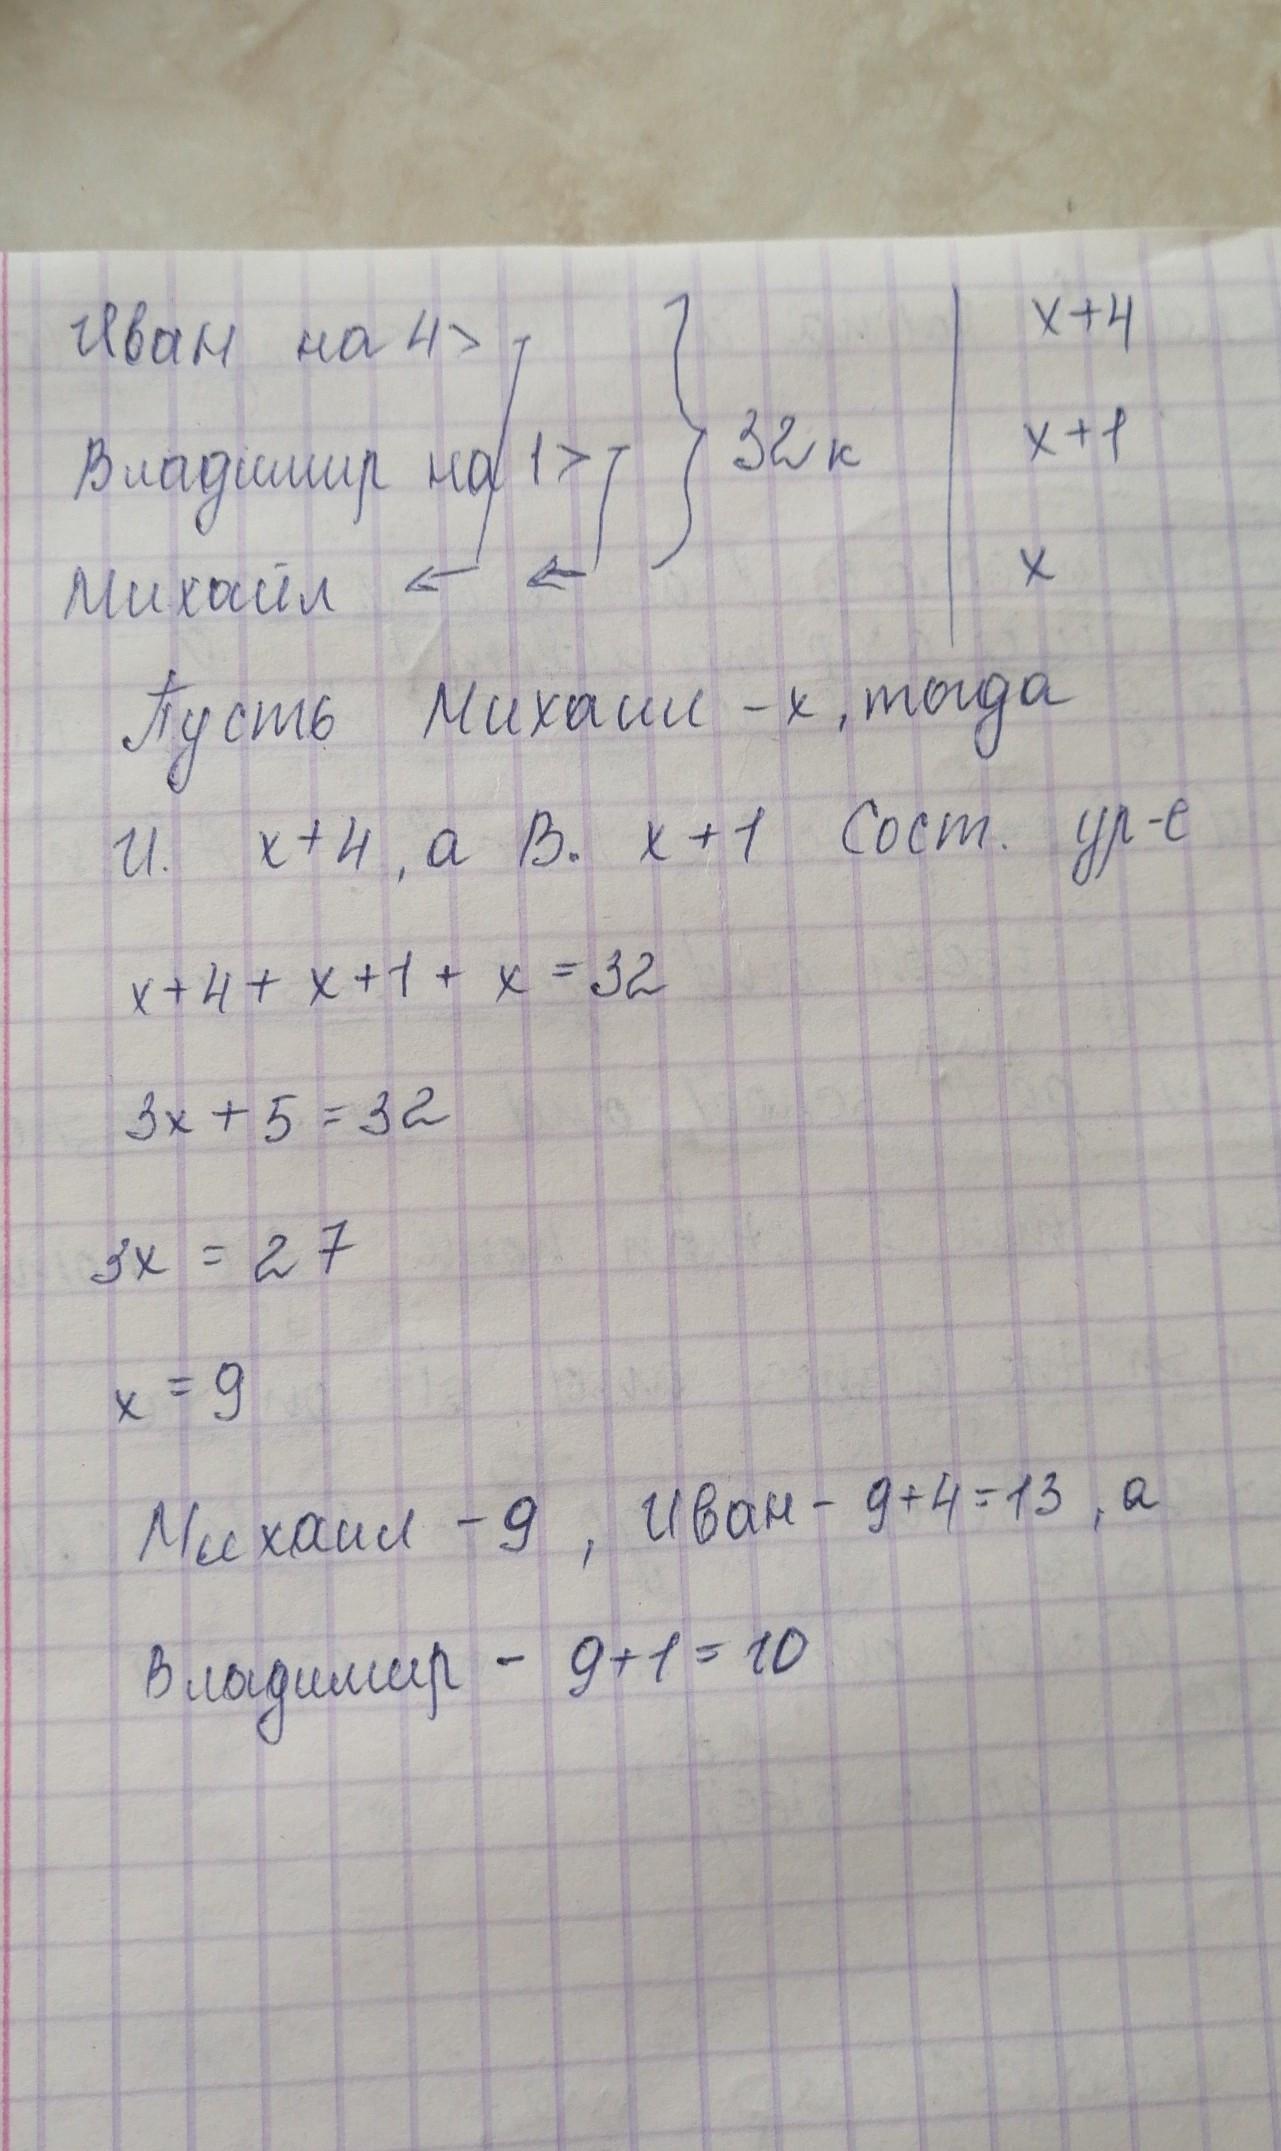 Иван на 4> x+4
Владимир на 1> 32 к x+1
Михаил x
Пусть Михаил - x, тогда
И. x+4, а В. x+1 Сост. ур-е
x+4+ x+1+ x = 32
3x + 5 = 32
3x = 27
x = 9
Михаил - 9, Иван - 9+4=13, а
Владимир - 9+1=10